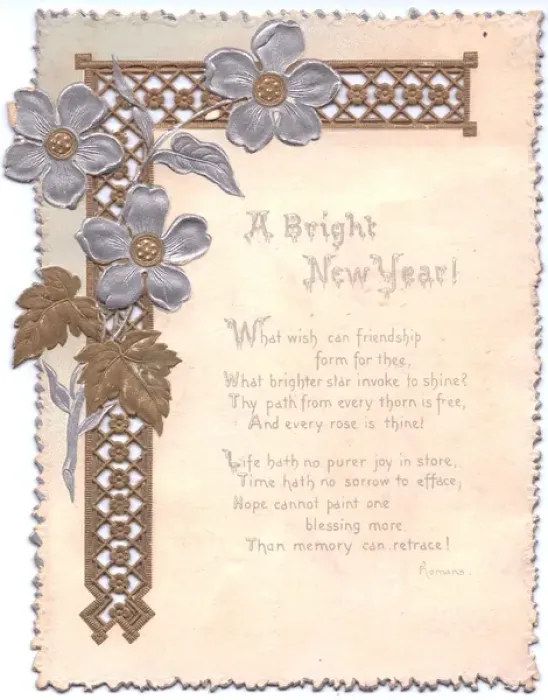 A Bright
New Year!
What wish can friendship
form for thee,
What brighter star invoke to shine?
Thy path from every thorn is free,
And every rose is thine!
Life hath no purer joy in store,
Time hath no sorrow to efface;
Hope cannot paint one
blessing more
Than memory can retrace!
Romans.